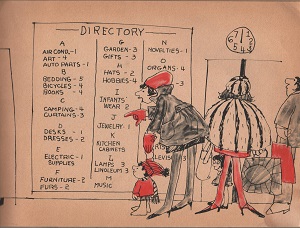 DIRECTORY
A
AIR COND.-1
ART - 4
AUTO PARTS - 1
B
BEDDING - 5
BICYCLES - 4
BOOKS - 4
C
CAMPING - 4
CURTAINS - 3
D
DESKS - 1
DRESSES - 2
E
ELECTRIC - 1
SUPPLIES
F
FURNITURE - 2
FURS - 2
G
GARDEN - 3
GIFTS - 3
H
HATS - 2
HOBBIES - 4
I
INFANTS
WEAR - 2
J
JEWELRY - 1
K
KITCHEN
CABINETS
L
LAMPS 3
LINOLEUM 3
M
MUSIC
N
NOVELTIES - 1
O
ORGANS - 4
6 7 1 2
5 4 3